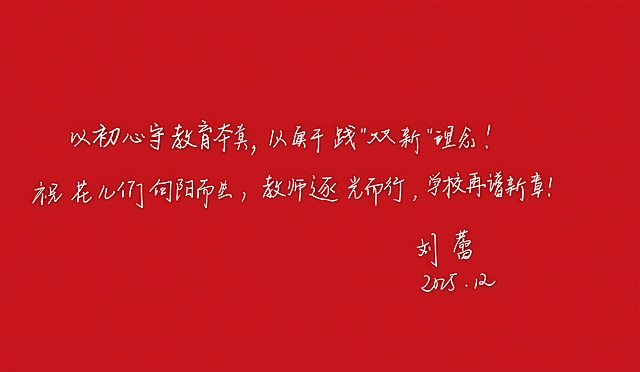 以初心守教育本真，以实干践“双新”理念！
祝花儿们向阳而生，教师逐光而行，学校再谱新章！
刘蕾
2025.12